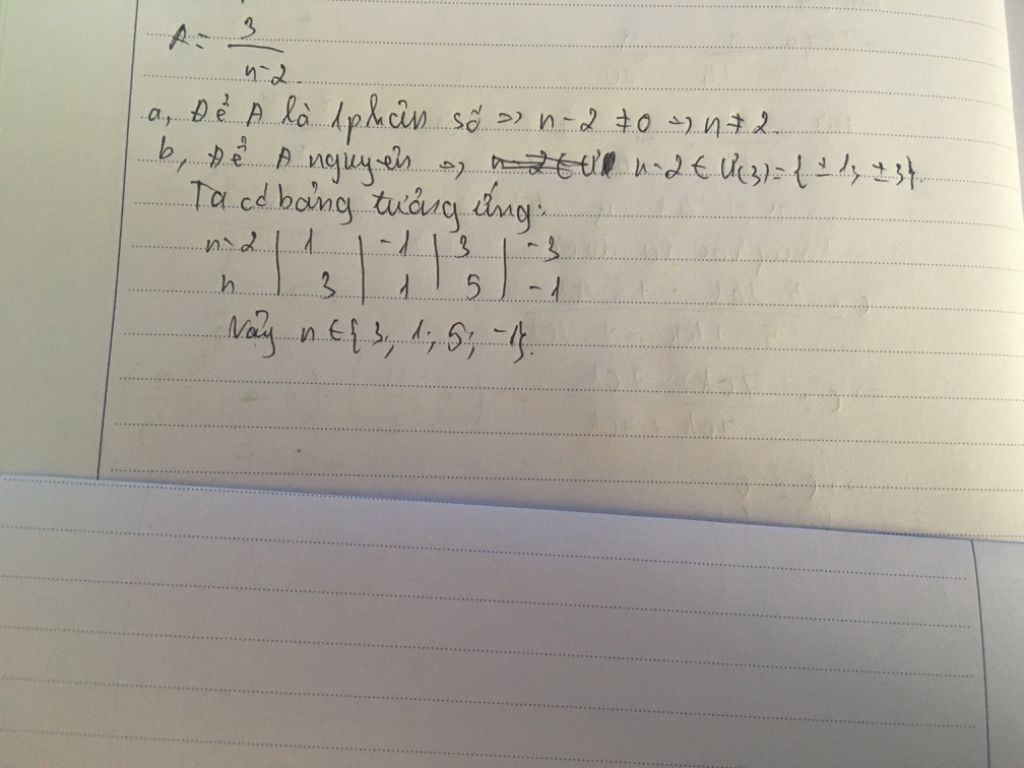 A = 3/(n-2)
a, Để A là 1 phân số => n-2 ≠ 0 => n ≠ 2.
b, Để A nguyên => n-2 ∈ Ư(3) = {±1; ±3}.
Ta có bảng tương ứng:
n-2 | 1 | -1 | 3 | -3
n | 3 | 1 | 5 | -1
Vậy n ∈ {3; 1; 5; -1}.